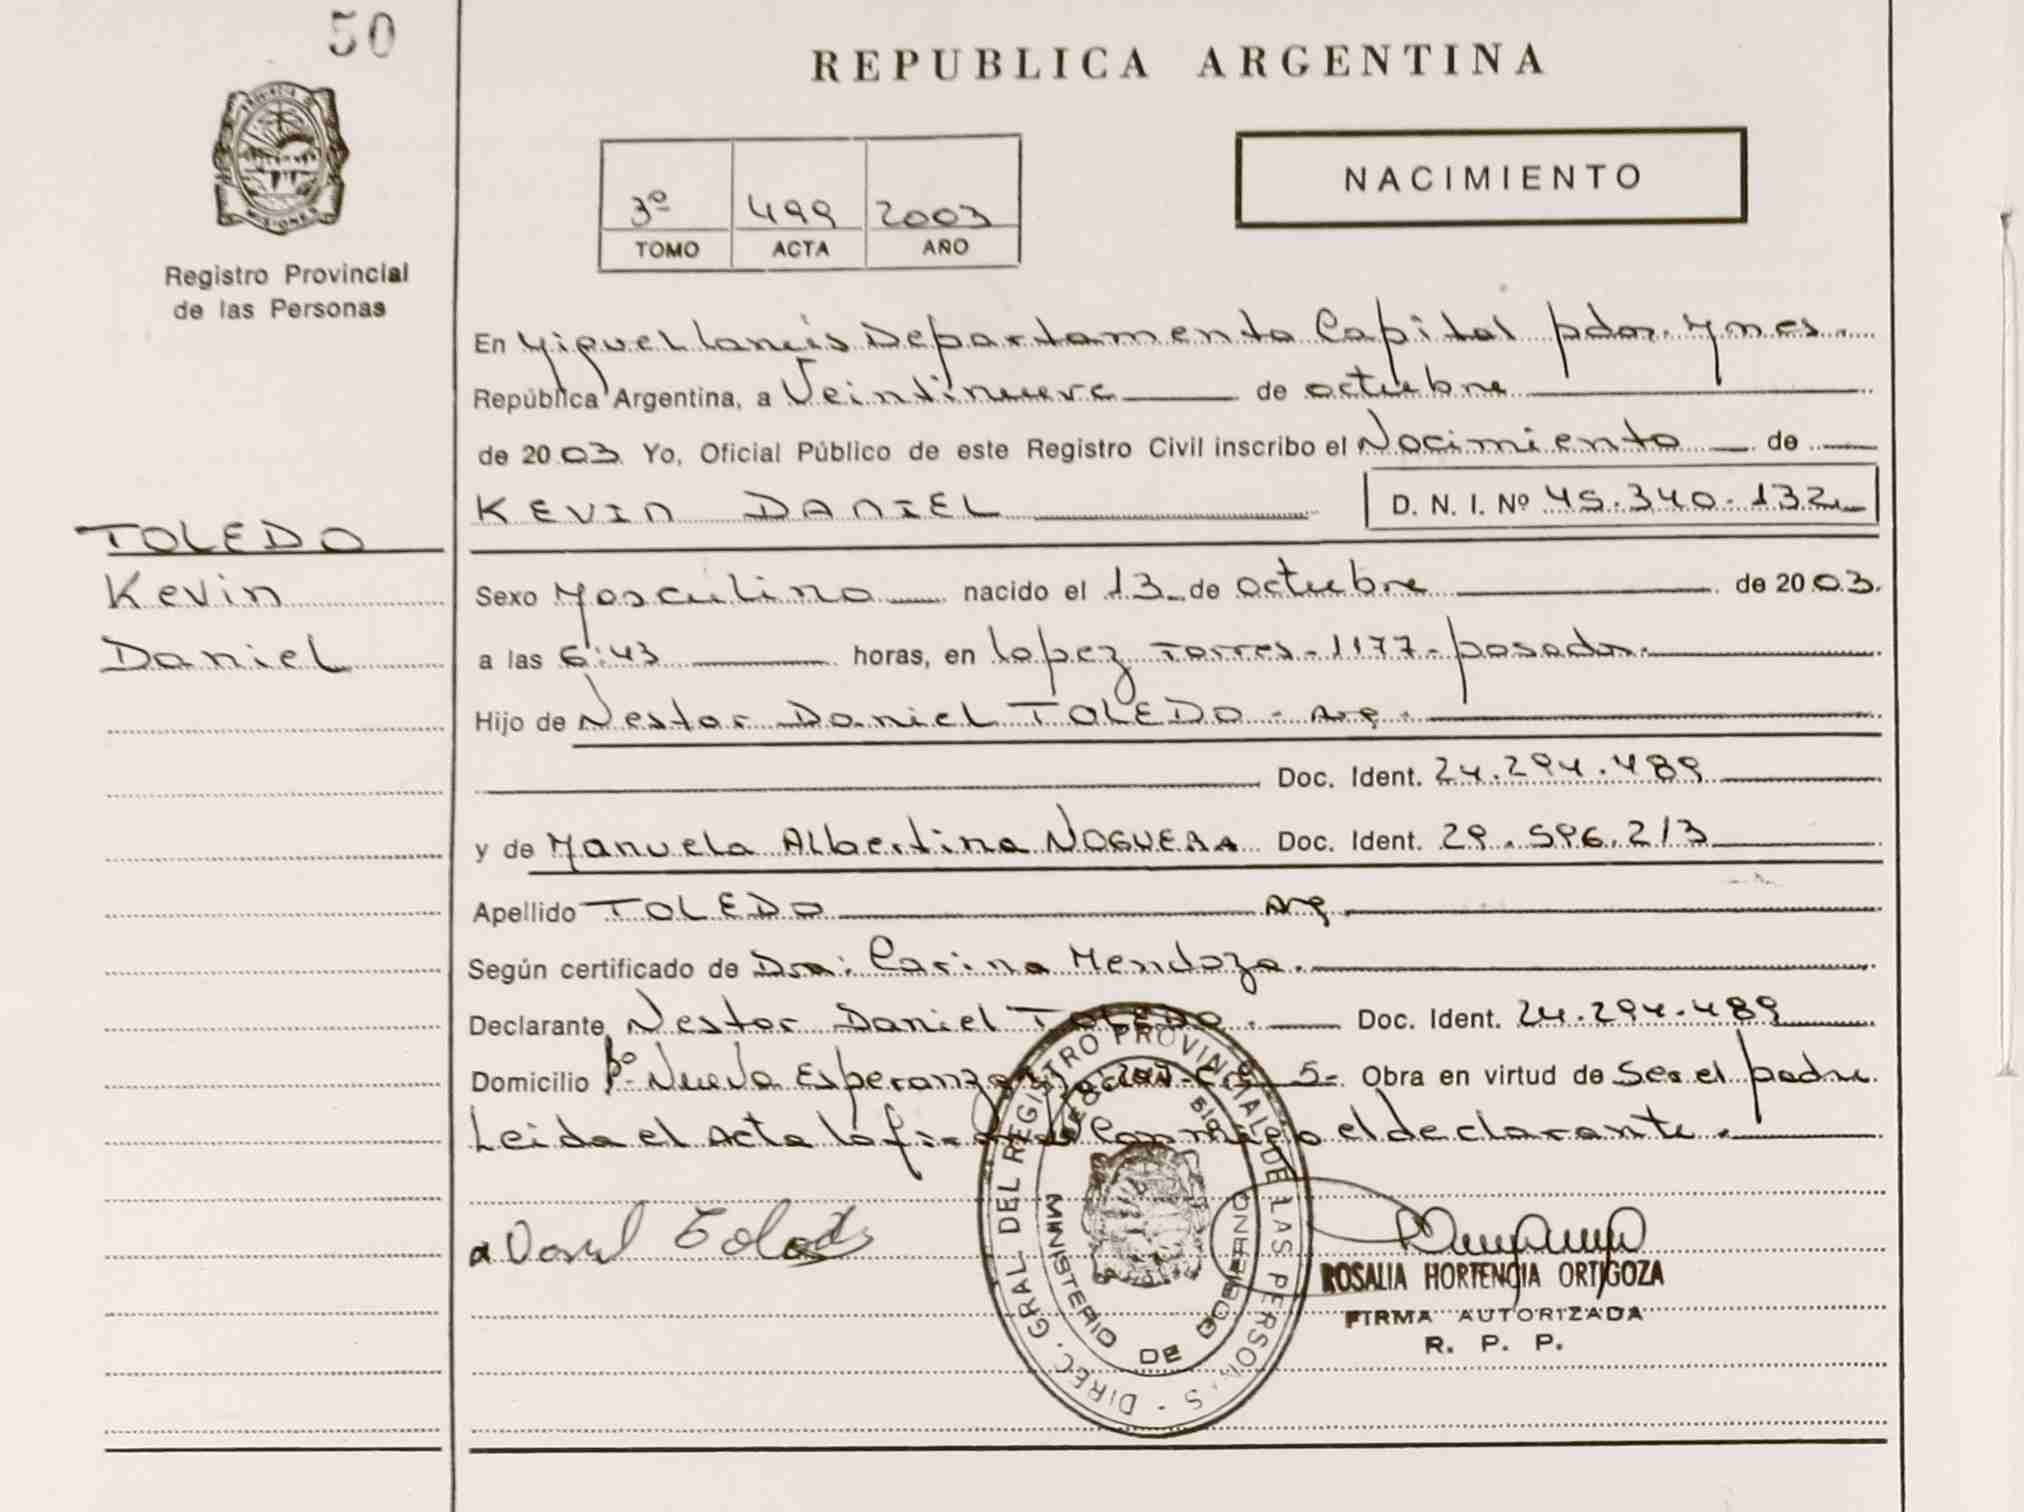 50
REPUBLICA ARGENTINA
PROVINCIA DE
MISIONES
Registro Provincial
de las Personas
NACIMIENTO
3º 499 2003
TOMO ACTA AÑO
En Miguel Lanus Departamento Capital pdas. Mnes.
República Argentina, a Veintinueve de octubre
de 2003 Yo, Oficial Público de este Registro Civil inscribo el Nacimiento de
KEVIN DANIEL D. N. I. Nº 45.340.132
TOLEDO
Kevin
Daniel
Sexo Masculino nacido el 13 de octubre de 2003.
a las 6:43 horas, en Lopez Torres - 1177 - posadas.
Hijo de Nestor Daniel TOLEDO - Arg.
Doc. Ident. 24.294.489
y de Manuela Albertina NOGUERA Doc. Ident. 29.596.213
Apellido TOLEDO Arg
Según certificado de Dra: Carina Mendoza.
Declarante Nestor Daniel TOLEDO. Doc. Ident. 24.294.489
Domicilio Bº Nueva Esperanza 5- Obra en virtud de Ser el padre
Leida el Acta la firma Conmigo el declarante.
Toledo
DIREC. GRAL. DEL REGISTRO PROVINCIAL DE LAS PERSONAS
MINISTERIO DE GOBIERNO
ROSALIA HORTENCIA ORTIGOZA
FIRMA AUTORIZADA
R. P. P.